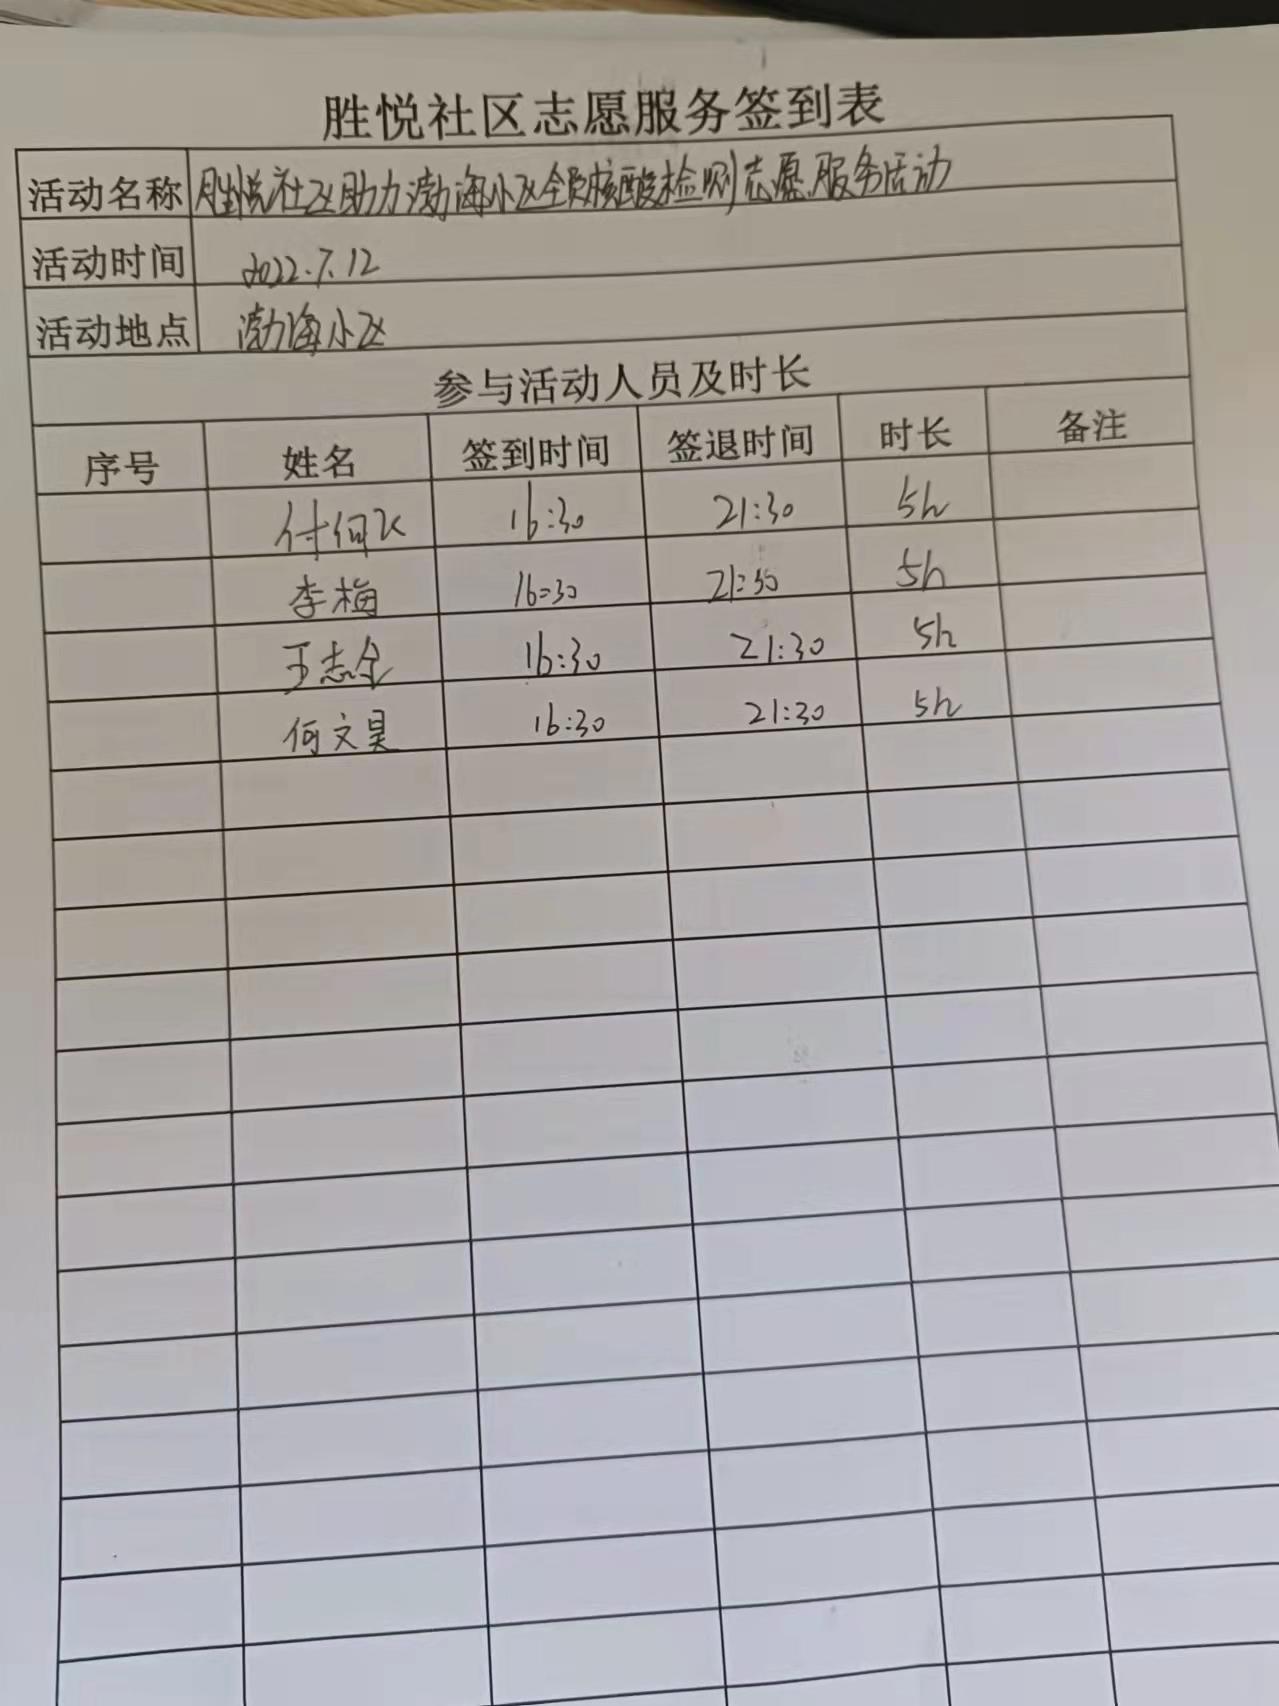 胜悦社区志愿服务签到表
活动名称 胜悦社区助力渤海小区全员核酸检测志愿服务活动
活动时间 2022.7.12
活动地点 渤海小区
参与活动人员及时长
序号 姓名 签到时间 签退时间 时长 备注
付何飞 16:30 21:30 5h
李梅 16:30 21:30 5h
王志全 16:30 21:30 5h
何文昊 16:30 21:30 5h